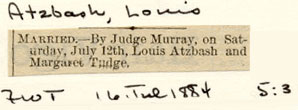 Atzbash, Louis
MARRIED.—By Judge Murray, on Sat-
urday, July 12th, Louis Atzbash and
Margaret Tudge.
16 Jul 1884 5:3